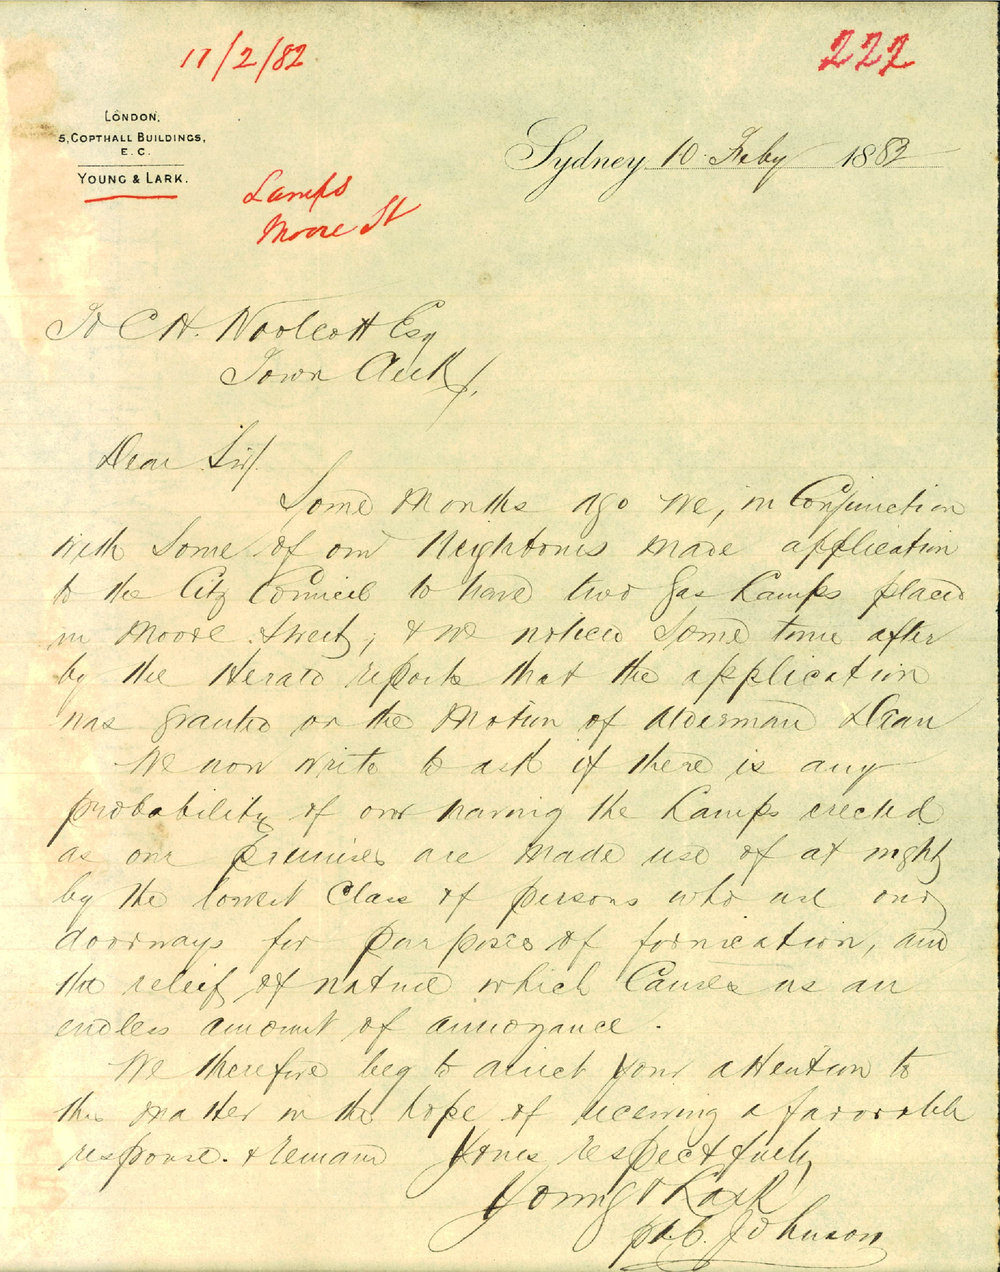 11/2/82
222
LONDON,
5, COPTHALL BUILDINGS,
E. C.
YOUNG & LARK.
Sydney 10 Feby 1882
Lamps
Moore St
To C H. Woolcott Esq
Town Clerk
Dear Sir/
Some months ago we, in Conjunction
with Some of our Neighbours made application
to the City Council to have two Gas Lamps placed
in Moore Street, & we noticed Some time after
by the Herald reports that the application
was granted on the Motion of Alderman Dean
We now write to ask if there is any
probability of our having the Lamps erected
as our premises are made use of at night
by the lowest Class of persons who use our
doorways for purposes of fornication, and
the releif of nature which Causes us an
endless amount of annoyance.
We therefore beg to direct your attention to
this matter in the hope of receiving a favorable
response. & remain Yours respectfully
Young & Lark
pr C. Johnson